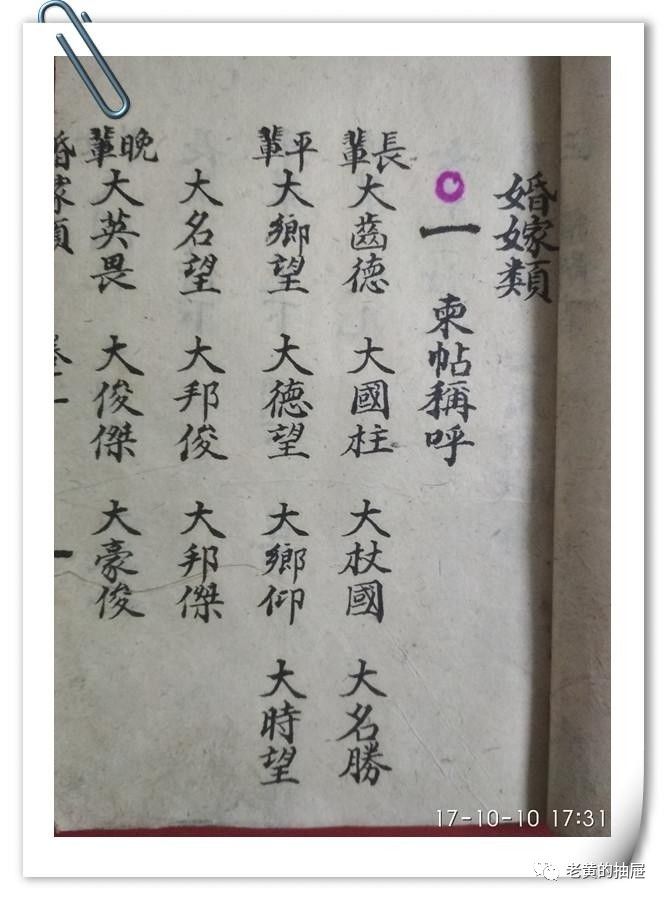 婚嫁類
一 柬帖稱呼
長輩 大齒德 大國柱 大杖國 大名勝
平輩 大鄉望 大德望 大鄉仰 大時望
大名望 大邦俊 大邦傑
晚輩 大英畏 大俊傑 大豪俊
婚嫁類 卷二 一
17-10-10 17:31
老黄的抽屉